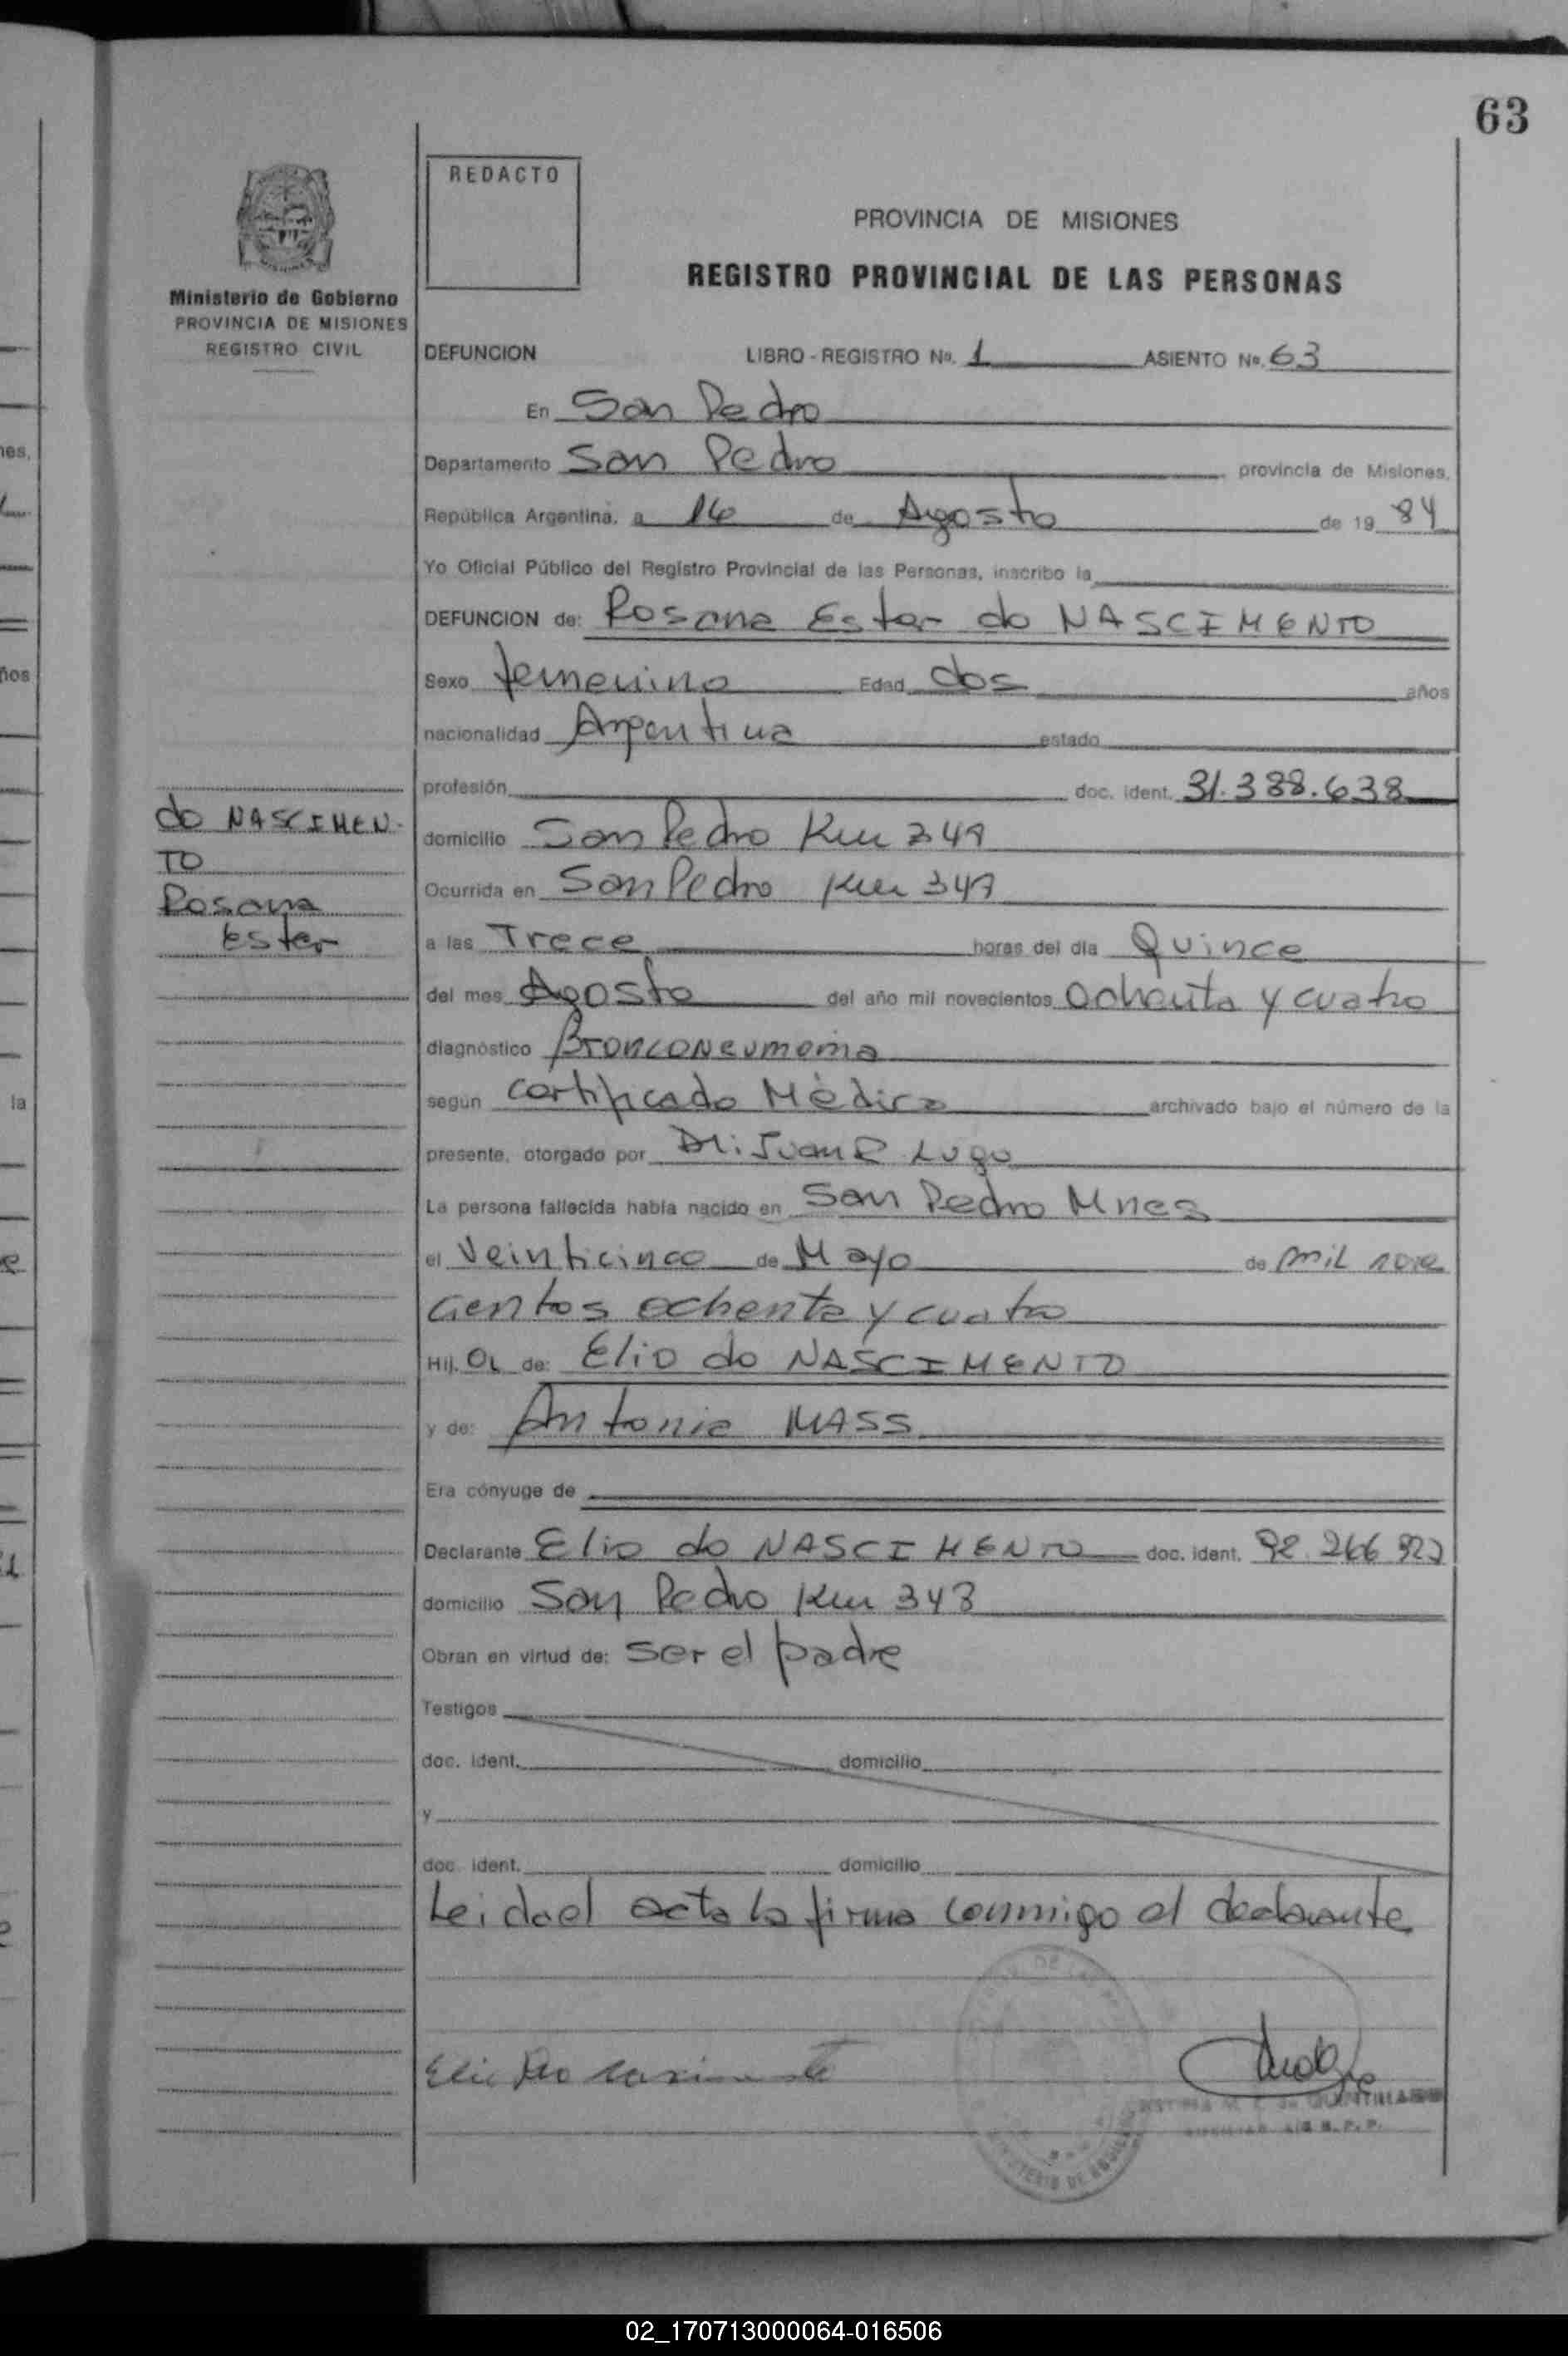 63
REDACTO
PROVINCIA DE MISIONES
REGISTRO PROVINCIAL DE LAS PERSONAS
Ministerio de Gobierno
PROVINCIA DE MISIONES
REGISTRO CIVIL
DEFUNCION LIBRO - REGISTRO No. 1 ASIENTO No. 63
En San Pedro
Departamento San Pedro provincia de Misiones,
República Argentina, a 16 de Agosto de 19 84
Yo Oficial Público del Registro Provincial de las Personas, inscribo la
DEFUNCION de: Rosana Ester do NASCIMENTO
Sexo femenino Edad dos años
nacionalidad Argentina estado
profesión doc. ident. 31.388.638
do NASCIMEN-
TO
Rosana
Ester
domicilio San Pedro Km 349
Ocurrida en San Pedro Km 349
a las Trece horas del día Quince
del mes Agosto del año mil novecientos Ochenta y cuatro
diagnóstico Bronconeumonia
según certificado Mèdico archivado bajo el número de la
presente, otorgado por Dr. Juan R Lugo
La persona fallecida había nacido en San Pedro Mnes
el Veinticinco de Mayo de mil nove
cientos ochenta y cuatro
Hij. a de: Elio do NASCIMENTO
y de: Antonia MASS
Era cónyuge de
Declarante Elio do NASCIMENTO doc. ident. 92.266
domicilio San Pedro Km 343
Obran en virtud de: ser el padre
Testigos
doc. ident. domicilio
y
doc. ident. domicilio
Leida el acta la firma conmigo el declarante
02_170713000064-016506